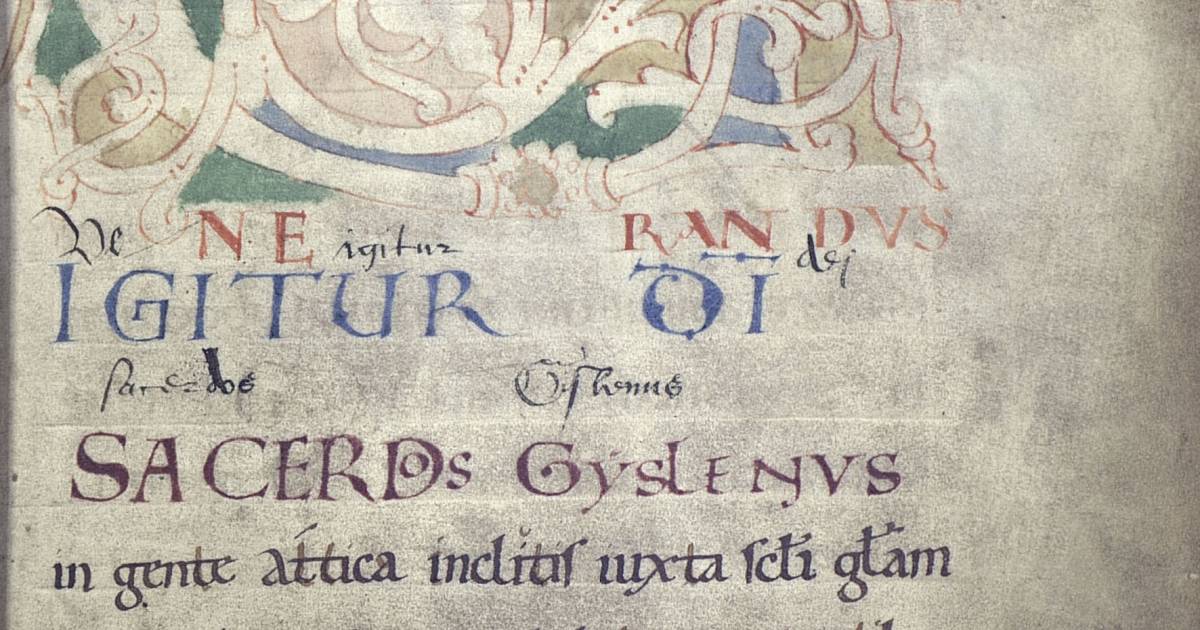 Ve igitur dej
NE RANDVS
IGITUR DI
sacerdos Gislenus
SACERDOs GyslENVS
in gente attica inclitis iuxta scti glam